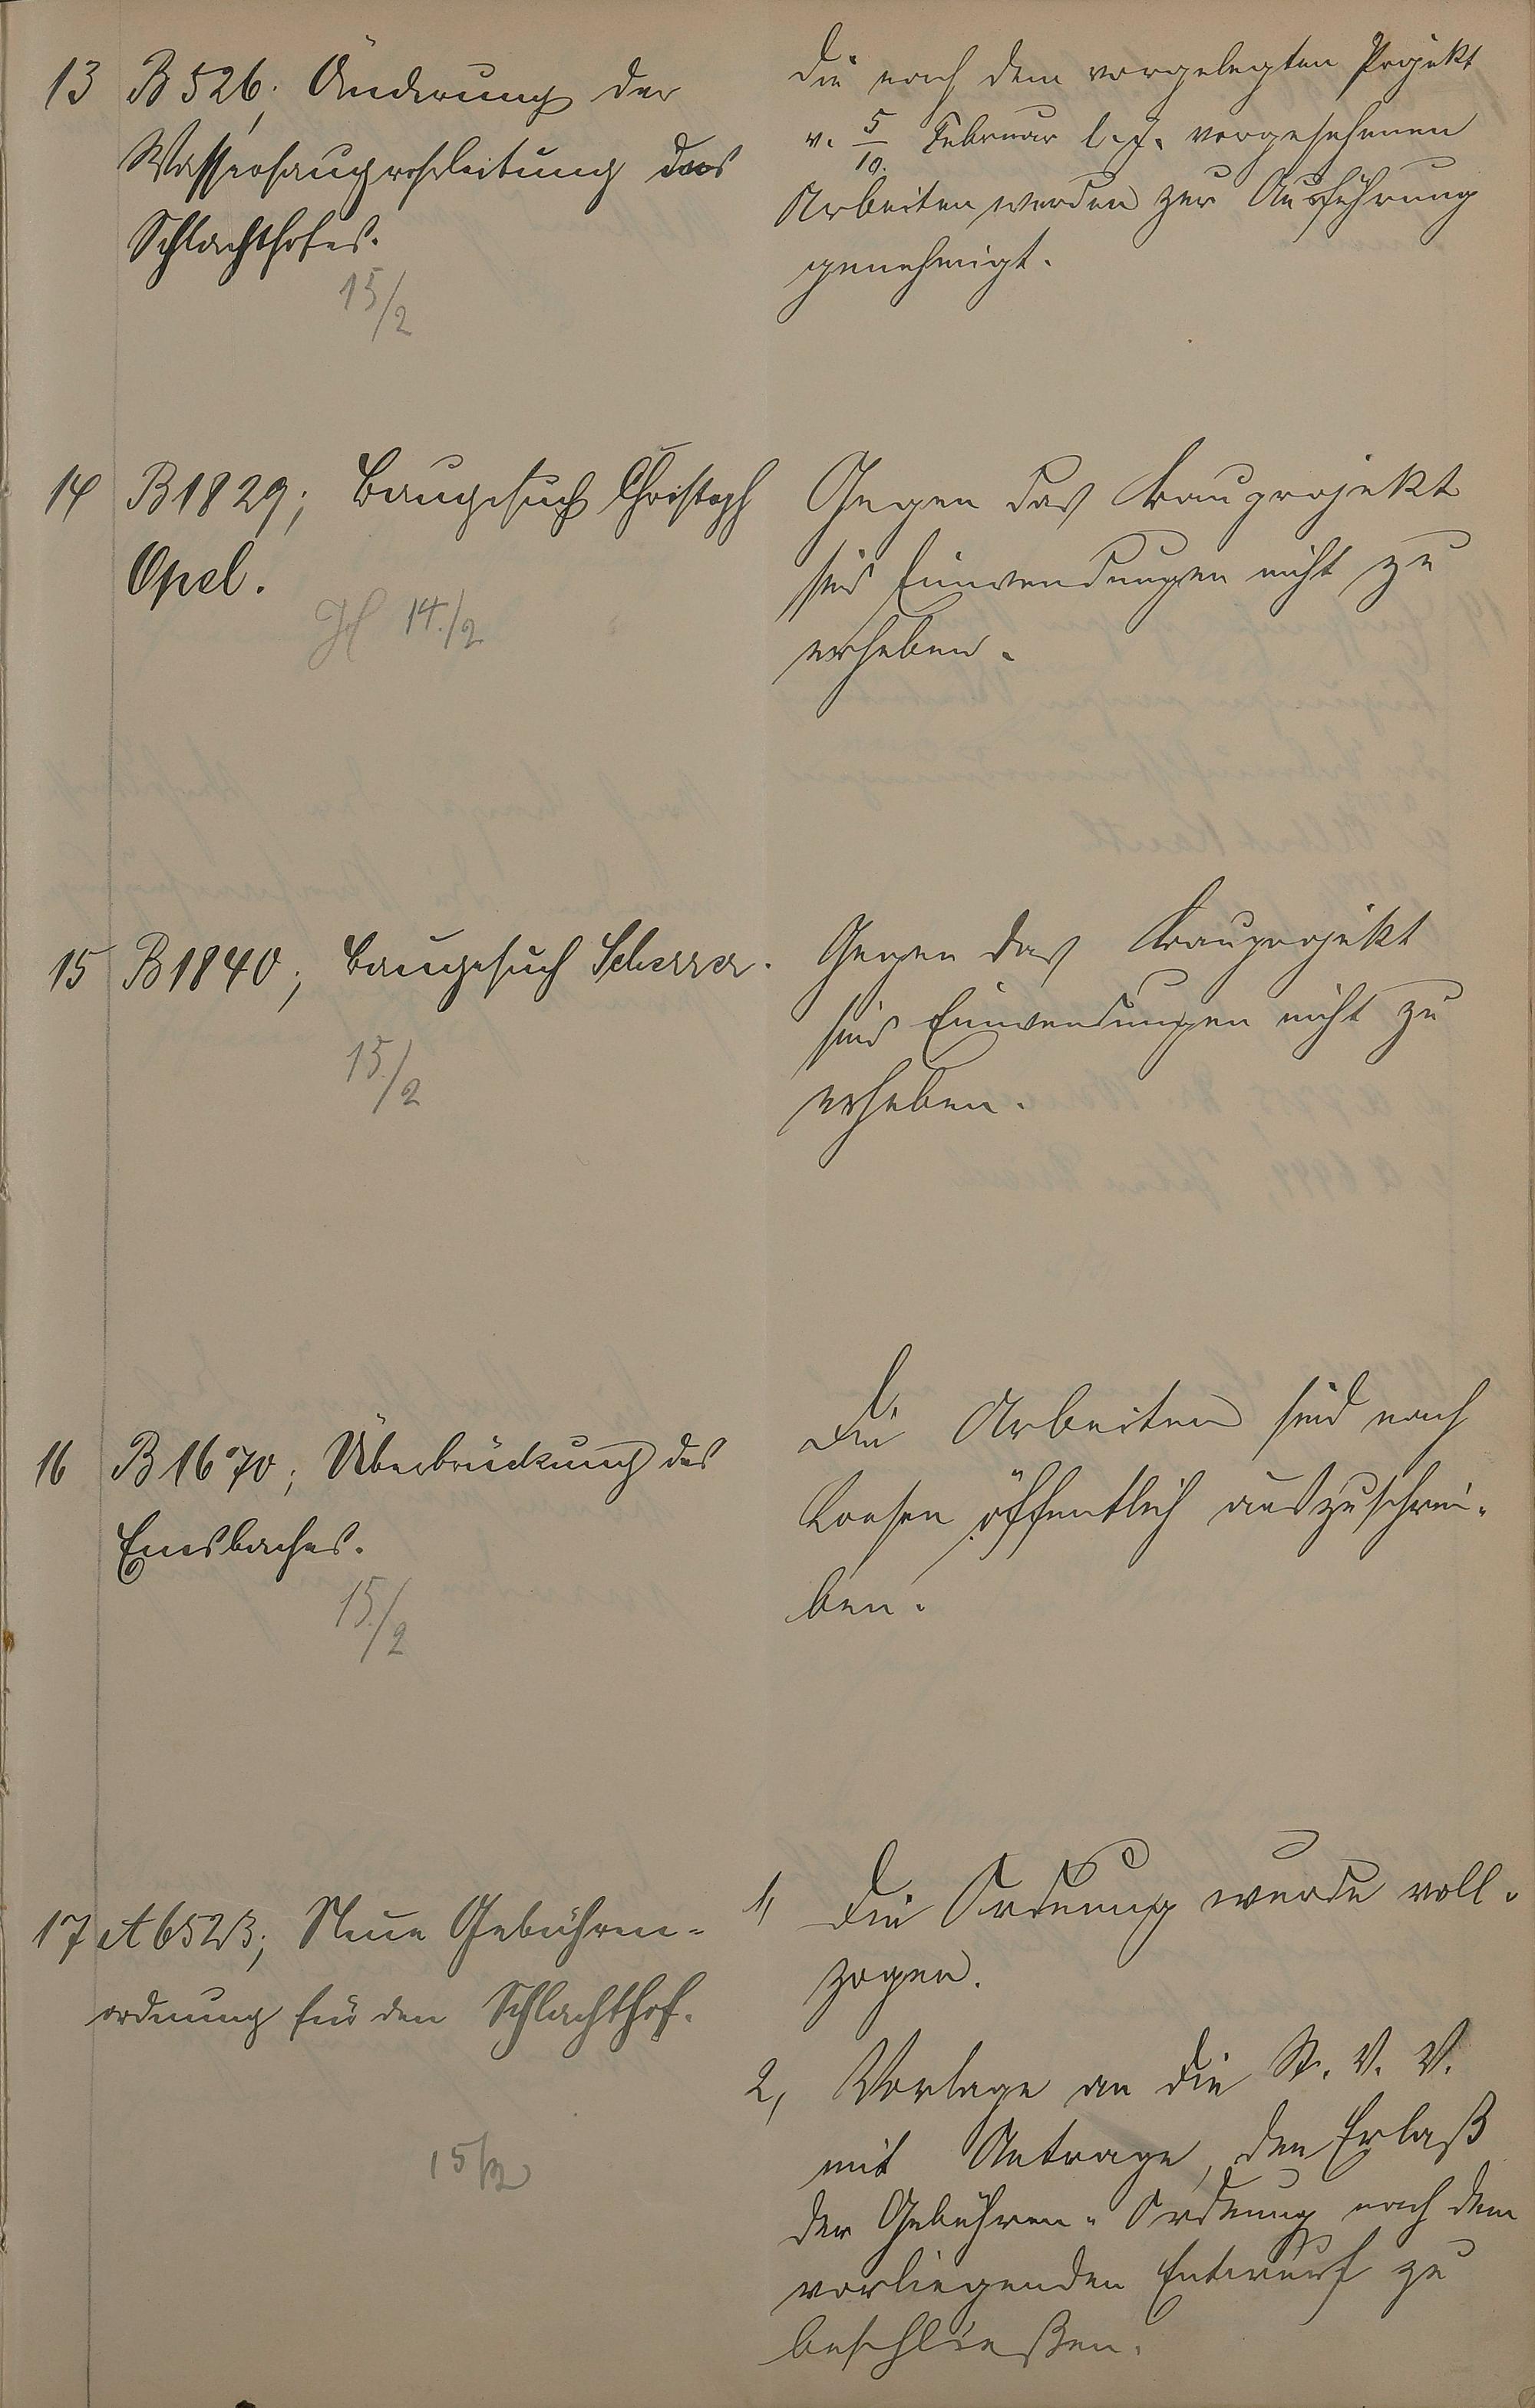 13 B 526; Änderung der
Wassersaugrohrleitung des
Schlachthofes.
15/2
Die nach dem vorgelegten Projekt
v. 5/10. Februar l. J. vorgesehenen
Arbeiten werden zur Ausführung
genehmigt.
14 B 1829; Baugesuch Christoph
Opel.
14./2
Gegen das Bauprojekt
sind Einwendungen nicht zu
erheben.
15 B 1840; Baugesuch Scherer.
15./2
Gegen das Bauprojekt
sind Einwendungen nicht zu
erheben.
16 B 1670; Überbrückung des
Emsbaches.
15./2
Die Arbeiten sind nach
Loosen öffentlich auszuschrei-
ben.
17 A 6523; Neue Gebühren-
ordnung für den Schlachthof.
15/2
1, Die Ordnung wurde voll-
zogen.
2, Vorlage an die St. V. V.
mit Antrage, den Erlaß
der Gebühren-Ordnung nach dem
vorliegenden Entwurf zu
beschließen.